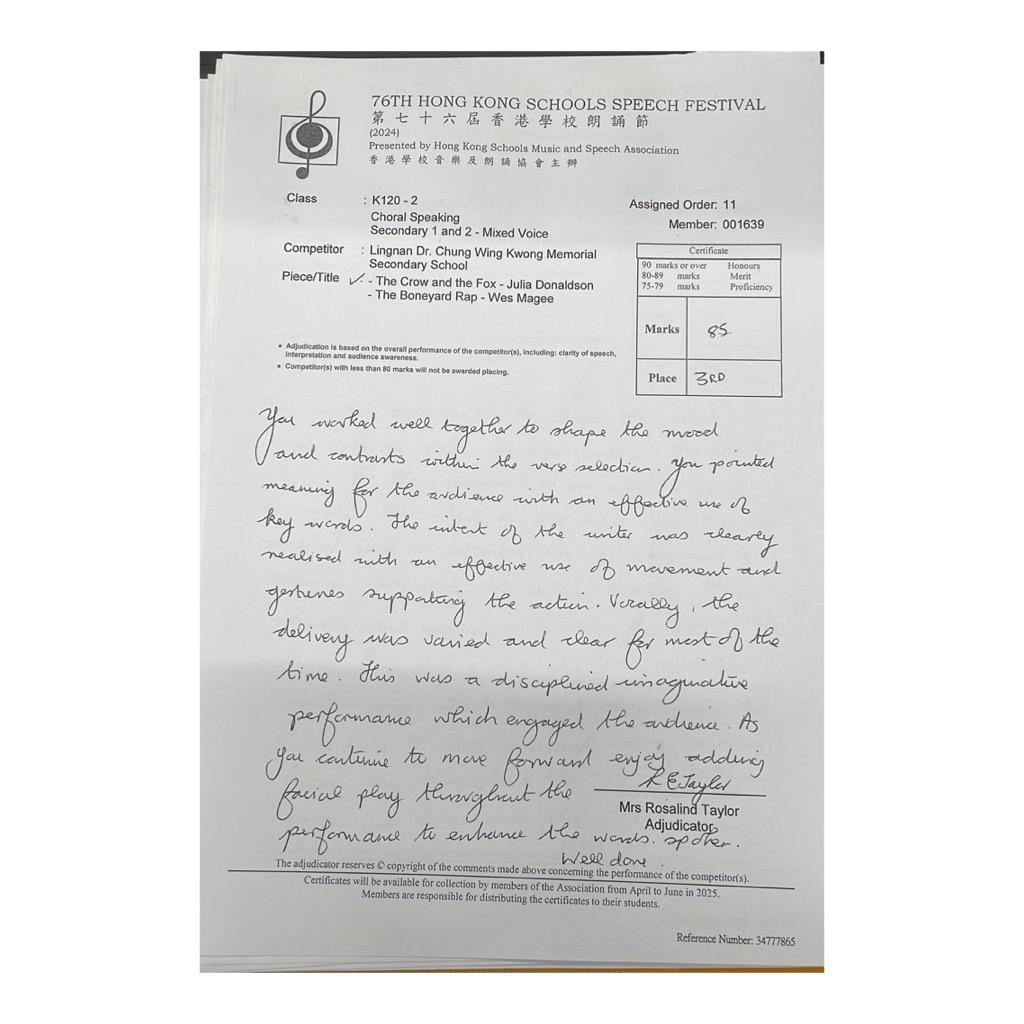 76TH HONG KONG SCHOOLS SPEECH FESTIVAL
第七十六屆香港學校朗誦節
(2024)
Presented by Hong Kong Schools Music and Speech Association
香港學校音樂及朗誦協會主辦
Class : K120 - 2
Choral Speaking
Secondary 1 and 2 - Mixed Voice
Assigned Order: 11
Member: 001639
Competitor : Lingnan Dr. Chung Wing Kwong Memorial
Secondary School
Piece/Title ✓ - The Crow and the Fox - Julia Donaldson
- The Boneyard Rap - Wes Magee
Certificate
90 marks or over Honours
80-89 marks Merit
75-79 marks Proficiency
Marks 85
Place 3RD
• Adjudication is based on the overall performance of the competitor(s), including: clarity of speech,
interpretation and audience awareness.
• Competitor(s) with less than 80 marks will not be awarded placing.
You worked well together to shape the mood
and contrasts within the verse selection. You pointed
meaning for the audience with an effective use of
key words. The intent of the writer was clearly
realised with an effective use of movement and
gestures supporting the action. Vocally, the
delivery was varied and clear for most of the
time. This was a disciplined imaginative
performance which engaged the audience. As
you continue to move forward enjoy adding
facial play throughout the
performance to enhance the words spoken.
Well done.
R E Taylor
Mrs Rosalind Taylor
Adjudicator
The adjudicator reserves © copyright of the comments made above concerning the performance of the competitor(s).
Certificates will be available for collection by members of the Association from April to June in 2025.
Members are responsible for distributing the certificates to their students.
Reference Number: 34777865